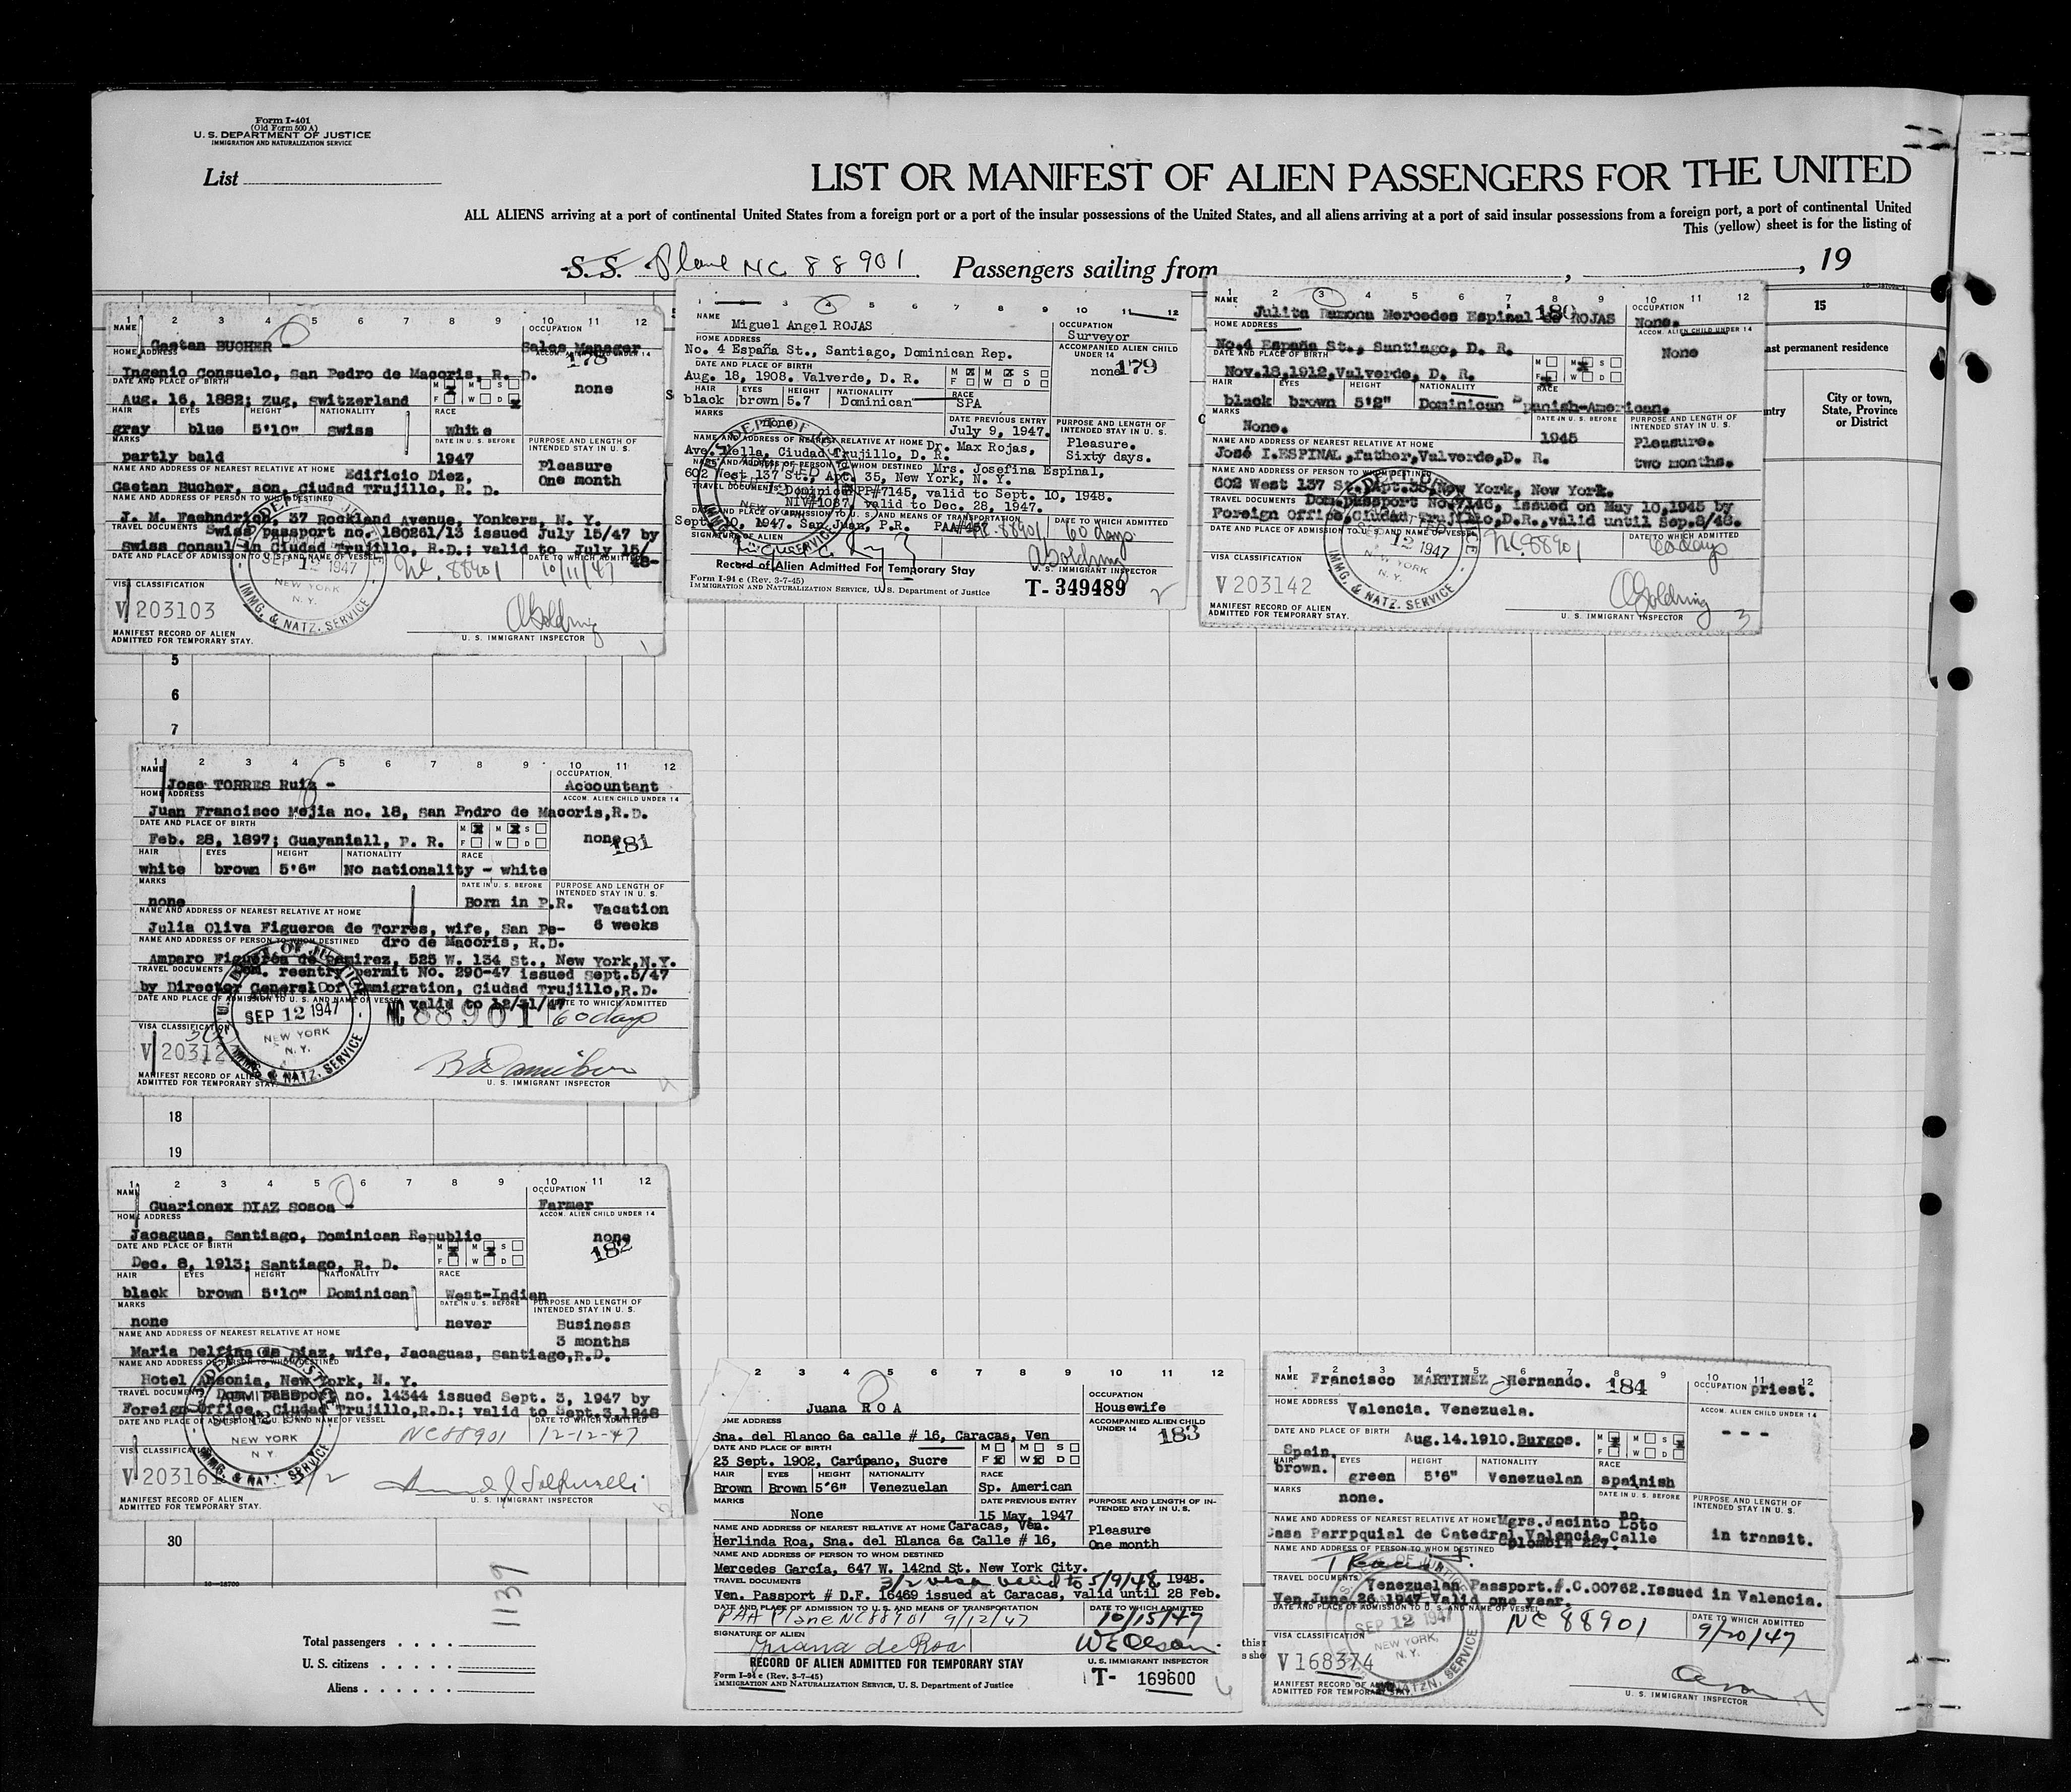 Form I-401
(Old Form 500 A)
U. S. DEPARTMENT OF JUSTICE
IMMIGRATION AND NATURALIZATION SERVICE
List
LIST OR MANIFEST OF ALIEN PASSENGERS FOR THE UNITED
ALL ALIENS arriving at a port of continental United States from a foreign port or a port of the insular possessions of the United States, and all aliens arriving at a port of said insular possessions from a foreign port, a port of continental United
This (yellow) sheet is for the listing of
S.S. Plane NC 88901 Passengers sailing from , , 19
1 2 3 4 5 6 7 8 9 10 11 12
NAME
Gaetan BUCHER -
OCCUPATION
Sales Manager
HOME ADDRESS
ACCOM. ALIEN CHILD UNDER 14
178
Ingenio Consuelo, San Pedro de Macoris, R. D.
DATE AND PLACE OF BIRTH
M M S
none
Aug. 16, 1882; Zug, Switzerland
F W D
HAIR EYES HEIGHT NATIONALITY RACE
gray blue 5'10" Swiss White
MARKS
DATE IN U. S. BEFORE
PURPOSE AND LENGTH OF INTENDED STAY IN U. S.
partly bald
1947
Pleasure
One month
NAME AND ADDRESS OF NEAREST RELATIVE AT HOME
Edificio Diez,
Gaetan Bucher, son, Ciudad Trujillo, R. D.
NAME AND ADDRESS OF PERSON TO WHOM DESTINED
J. M. Faehndrich, 37 Rockland Avenue, Yonkers, N. Y.
TRAVEL DOCUMENTS
Swiss passport no. 180261/13 issued July 15/47 by
Swiss Consul in Ciudad Trujillo, R.D.; valid to July 15/
48-
DATE AND PLACE OF ADMISSION TO U. S. AND NAME OF VESSEL
DATE TO WHICH ADMITTED
SEP 12 1947
NEW YORK
N. Y.
IMMG. & NATZ. SERVICE
NC 88901 10/11/47
VISA CLASSIFICATION
V 203103
A Goldring
MANIFEST RECORD OF ALIEN
ADMITTED FOR TEMPORARY STAY.
U. S. IMMIGRANT INSPECTOR
1
1 2 3 4 5 6 7 8 9 10 11 12
NAME
Miguel Angel ROJAS
OCCUPATION
Surveyor
HOME ADDRESS
No. 4 España St., Santiago, Dominican Rep.
ACCOMPANIED ALIEN CHILD UNDER 14
none
179
DATE AND PLACE OF BIRTH
Aug. 18, 1908. Valverde, D. R.
M M S
F W D
HAIR EYES HEIGHT NATIONALITY RACE
black brown 5.7 Dominican SPA
MARKS
none
DATE PREVIOUS ENTRY
July 9, 1947.
PURPOSE AND LENGTH OF INTENDED STAY IN U. S.
Pleasure.
Sixty days.
NAME AND ADDRESS OF NEAREST RELATIVE AT HOME Dr. Max Rojas,
Ave. Mella, Ciudad Trujillo, D. R.
NAME AND ADDRESS OF PERSON TO WHOM DESTINED Mrs. Josefina Espinal,
602 West 137 St., Apt. 35, New York, N. Y.
TRAVEL DOCUMENTS Dominican PP#7145, valid to Sept. 10, 1948.
NIV#1087, valid to Dec. 28, 1947.
DATE AND PLACE OF ADMISSION TO U. S. AND MEANS OF TRANSPORTATION
DATE TO WHICH ADMITTED
Sept. 10, 1947. San Juan, P.R. PAA#457 NC 88901 60 days
SIGNATURE OF ALIEN
A Goldring
Record of Alien Admitted For Temporary Stay
U. S. IMMIGRANT INSPECTOR
Form I-94 c (Rev. 3-7-45)
IMMIGRATION AND NATURALIZATION SERVICE, U. S. Department of Justice
T- 349489
2
1 2 3 4 5 6 7 8 9 10 11 12
NAME
Julita Ramona Mercedes Espinal de ROJAS
180
OCCUPATION
None.
HOME ADDRESS
ACCOM. ALIEN CHILD UNDER 14
No.4 España St., Santiago, D. R.
None
DATE AND PLACE OF BIRTH
M M S
F W D
Nov.18,1912,Valverde, D. R.
HAIR EYES HEIGHT NATIONALITY RACE
black brown 5'2" Dominican Spanish-American.
MARKS
None.
DATE IN U. S. BEFORE
1945
PURPOSE AND LENGTH OF INTENDED STAY IN U. S.
Pleasure.
two months.
NAME AND ADDRESS OF NEAREST RELATIVE AT HOME
José I.ESPINAL,father,Valverde,D. R.
NAME AND ADDRESS OF PERSON TO WHOM DESTINED
602 West 137 St.,Apt.35,New York, New York.
TRAVEL DOCUMENTS Dom.passport No.7146, issued on May 10,1945 by
Foreign Office,Ciudad Trujillo,D.R.,valid until Sep.8/48.
DATE AND PLACE OF ADMISSION TO U. S. AND NAME OF VESSEL
DATE TO WHICH ADMITTED
SEP 12 1947
N. Y.
IMMG. & NATZ. SERVICE
NC88901 60 days
VISA CLASSIFICATION
V 203142
A Goldring
MANIFEST RECORD OF ALIEN
ADMITTED FOR TEMPORARY STAY.
U. S. IMMIGRANT INSPECTOR
3
15
ast permanent residence
City or town,
State, Province
or District
5
6
7
1 2 3 4 5 6 7 8 9 10 11 12
NAME
Jose TORRES Ruiz -
OCCUPATION
Accountant
HOME ADDRESS
ACCOM. ALIEN CHILD UNDER 14
Juan Francisco Mejia no. 18, San Pedro de Macoris,R.D.
DATE AND PLACE OF BIRTH
M M S
F W D
Feb. 28, 1897; Guayaniall, P. R.
none
181
HAIR EYES HEIGHT NATIONALITY RACE
white brown 5'6" No nationality - white
MARKS
none
DATE IN U. S. BEFORE
Born in P.R.
PURPOSE AND LENGTH OF INTENDED STAY IN U. S.
Vacation
6 weeks
NAME AND ADDRESS OF NEAREST RELATIVE AT HOME
Julia Oliva Figueroa de Torres, wife, San Pe-
NAME AND ADDRESS OF PERSON TO WHOM DESTINED dro de Macoris, R.D.
Amparo Figueroa de Ramirez, 525 W. 134 St., New York,N.Y.
TRAVEL DOCUMENTS Dom. reentry permit No. 290-47 issued Sept.5/47
by Director General of Immigration, Ciudad Trujillo,R.D.
DATE AND PLACE OF ADMISSION TO U. S. AND NAME OF VESSEL valid to 12/31/47 DATE TO WHICH ADMITTED
SEP 12 1947
NEW YORK
N. Y.
NC 88901 60 days
VISA CLASSIFICATION
V 20312
MANIFEST RECORD OF ALIEN
ADMITTED FOR TEMPORARY STAY.
U. S. IMMIGRANT INSPECTOR
4
18
19
1 2 3 4 5 6 7 8 9 10 11 12
NAME
Guarionex DIAZ Sosoa -
OCCUPATION
Farmer
HOME ADDRESS
ACCOM. ALIEN CHILD UNDER 14
Jacaguas, Santiago, Dominican Republic
none
182
DATE AND PLACE OF BIRTH
M M S
F W D
Dec. 8, 1913; Santiago, R. D.
HAIR EYES HEIGHT NATIONALITY RACE
black brown 5'10" Dominican West-Indian
MARKS
none
DATE IN U. S. BEFORE
never
PURPOSE AND LENGTH OF INTENDED STAY IN U. S.
Business
3 months
NAME AND ADDRESS OF NEAREST RELATIVE AT HOME
Maria Delfina de Diaz, wife, Jacaguas, Santiago,R.D.
NAME AND ADDRESS OF PERSON TO WHOM DESTINED
Hotel Ansonia, New York, N. Y.
TRAVEL DOCUMENTS Dom. passport no. 14344 issued Sept. 3, 1947 by
Foreign Office, Ciudad Trujillo,R.D.; valid to Sept.3,1948
DATE AND PLACE OF ADMISSION TO U. S. AND NAME OF VESSEL
DATE TO WHICH ADMITTED
NEW YORK
N Y.
NC88901 12-12-47
VISA CLASSIFICATION
V 20316 3/2
MANIFEST RECORD OF ALIEN
ADMITTED FOR TEMPORARY STAY.
U. S. IMMIGRANT INSPECTOR
5
30
1139
Total passengers
U. S. citizens
Aliens
2 3 4 5 6 7 8 9 10 11 12
Juana ROA
OCCUPATION
Housewife
OME ADDRESS
Sna. del Blanco 6a calle # 16, Caracas, Ven
ACCOMPANIED ALIEN CHILD UNDER 14
183
DATE AND PLACE OF BIRTH
23 Sept. 1902, Carúpano, Sucre
M M S
F W D
HAIR EYES HEIGHT NATIONALITY RACE
Brown Brown 5'6" Venezuelan Sp. American
MARKS
None
DATE PREVIOUS ENTRY
15 May, 1947
PURPOSE AND LENGTH OF INTENDED STAY IN U.S.
Pleasure
One month
NAME AND ADDRESS OF NEAREST RELATIVE AT HOME Caracas, Ven.
Herlinda Roa, Sna. del Blanca 6a Calle # 16,
NAME AND ADDRESS OF PERSON TO WHOM DESTINED
Mercedes García, 647 W. 142nd St. New York City.
TRAVEL DOCUMENTS 3/2 visa valid to 5/9/48 1948.
Ven. Passport # D.F. 16469 issued at Caracas, valid until 28 Feb.
DATE AND PLACE OF ADMISSION TO U. S. AND MEANS OF TRANSPORTATION
DATE TO WHICH ADMITTED
PAA Plane NC88901 9/12/47 10/15/47
SIGNATURE OF ALIEN
Juana de Roa
W E Olson
RECORD OF ALIEN ADMITTED FOR TEMPORARY STAY
U. S. IMMIGRANT INSPECTOR
Form I-94 c (Rev. 3-7-45)
IMMIGRATION AND NATURALIZATION SERVICE, U. S. Department of Justice
T- 169600
6
1 2 3 4 5 6 7 8 9 10 11 12
NAME Francisco MARTINEZ Hernando. 184
OCCUPATION priest.
HOME ADDRESS
Valencia. Venezuela.
ACCOM. ALIEN CHILD UNDER 14
- - -
DATE AND PLACE OF BIRTH Aug.14.1910.Burgos.
Spain.
M M S
F W D
HAIR EYES HEIGHT NATIONALITY RACE
brown. green 5'6" Venezuelan spainish
MARKS
none.
DATE IN U. S. BEFORE
no.
PURPOSE AND LENGTH OF INTENDED STAY IN U. S.
in transit.
NAME AND ADDRESS OF NEAREST RELATIVE AT HOME Mgrs.Jacinto Soto
Casa Parrpquial de Catedral,Valencia.Calle
NAME AND ADDRESS OF PERSON TO WHOM DESTINED Colombia 227.
TRAVEL DOCUMENTS Venezuelan Passport.#.C.00762.Issued in Valencia.
Ven.June 26.1947 Valid one year.
DATE AND PLACE OF ADMISSION TO U. S. AND NAME OF VESSEL
DATE TO WHICH ADMITTED
SEP 12 1947
NEW YORK,
N. Y.
NC 88901 9/20/47
VISA CLASSIFICATION
V 168374
MANIFEST RECORD OF ALIEN
ADMITTED FOR TEMPORARY STAY.
U. S. IMMIGRANT INSPECTOR
7